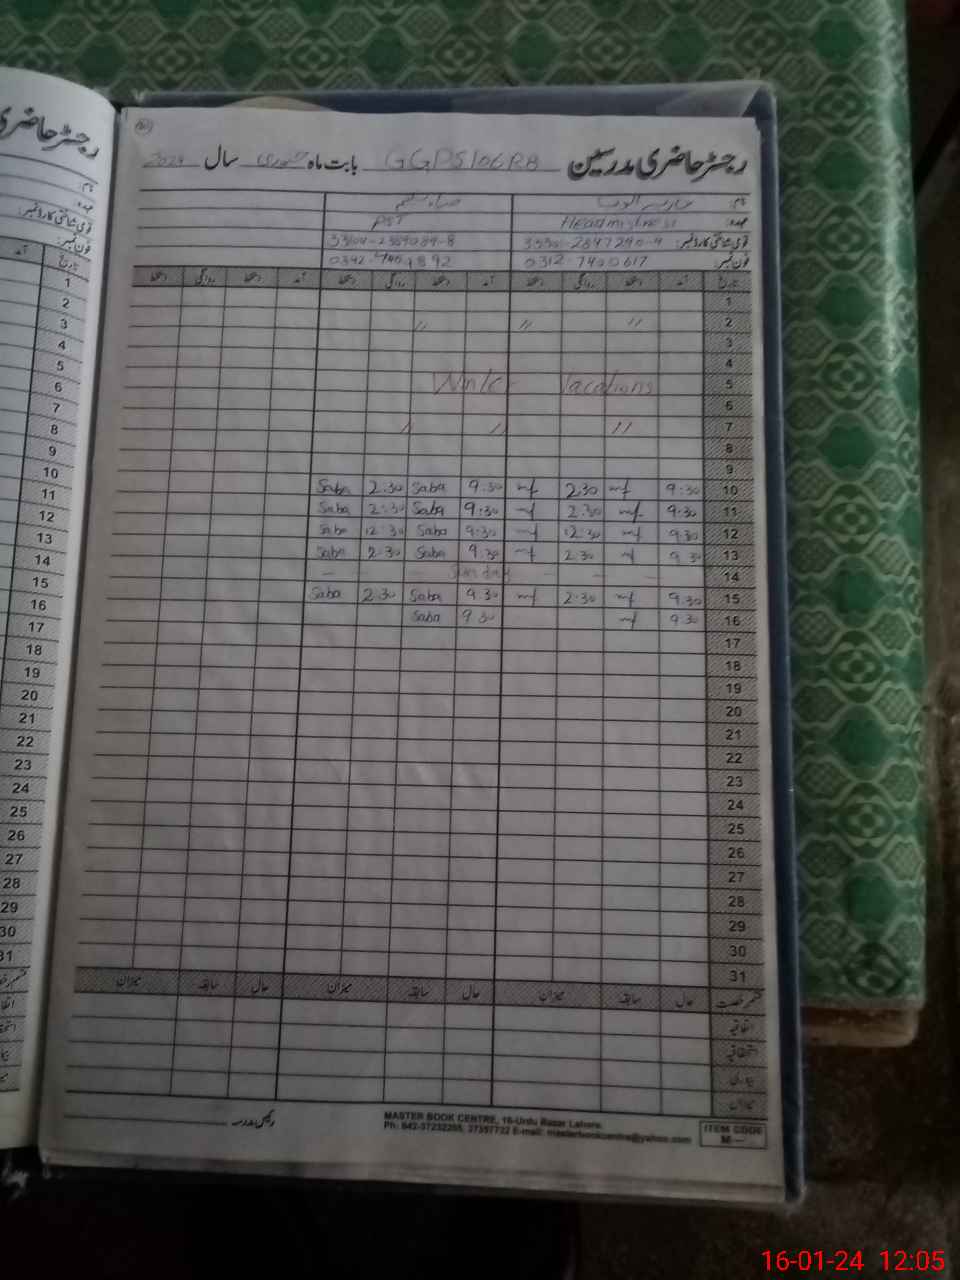 رجسٹر حاضری مدرسین GGPS 106RB بابت ماہ جنوری سال 2024
نام:
عہدہ: Headmistress PST
قومی شناختی کارڈ نمبر:
فون نمبر: 0312-7400617
تاریخ آمد دستخط روانگی دستخط آمد دستخط روانگی دستخط آمد دستخط روانگی دستخط
1
2 // // //
3
4
5 Vacations
6
7 // // //
8
9
10 9:30 mf 2:30 mf 9:30 Saba 2:30 Saba
11 9:30 mf 2:30 mf 9:30 Saba 2:30 Saba
12 9:30 mf 12:30 mf 9:30 Saba 12:30 Saba
13 9:30 mf 2:30 mf 9:30 Saba 2:30 Saba
14 Sunday
15 9:30 mf 2:30 mf 9:30 Saba 2:30 Saba
16 9:30 mf 9:30 Saba
17
18
19
20
21
22
23
24
25
26
27
28
29
30
31
قسم رخصت حال سابقہ میزان حال سابقہ میزان حال سابقہ میزان
اتفاقیہ
استحقاقیہ
بیماری
میزان
رئیس مدرسہ
MASTER BOOK CENTRE, 16-Urdu Bazar Lahore.
Ph: 042-37232265, 37357722 E-mail: masterbookcentre@yahoo.com
ITEM CODE
M
رجسٹر حاضری
نام:
عہدہ:
قومی شناختی کارڈ نمبر:
فون نمبر:
تاریخ آمد
1
2
3
4
5
6
7
8
9
10
11
12
13
14
15
16
17
18
19
20
21
22
23
24
25
26
27
28
29
30
31
16-01-24 12:05